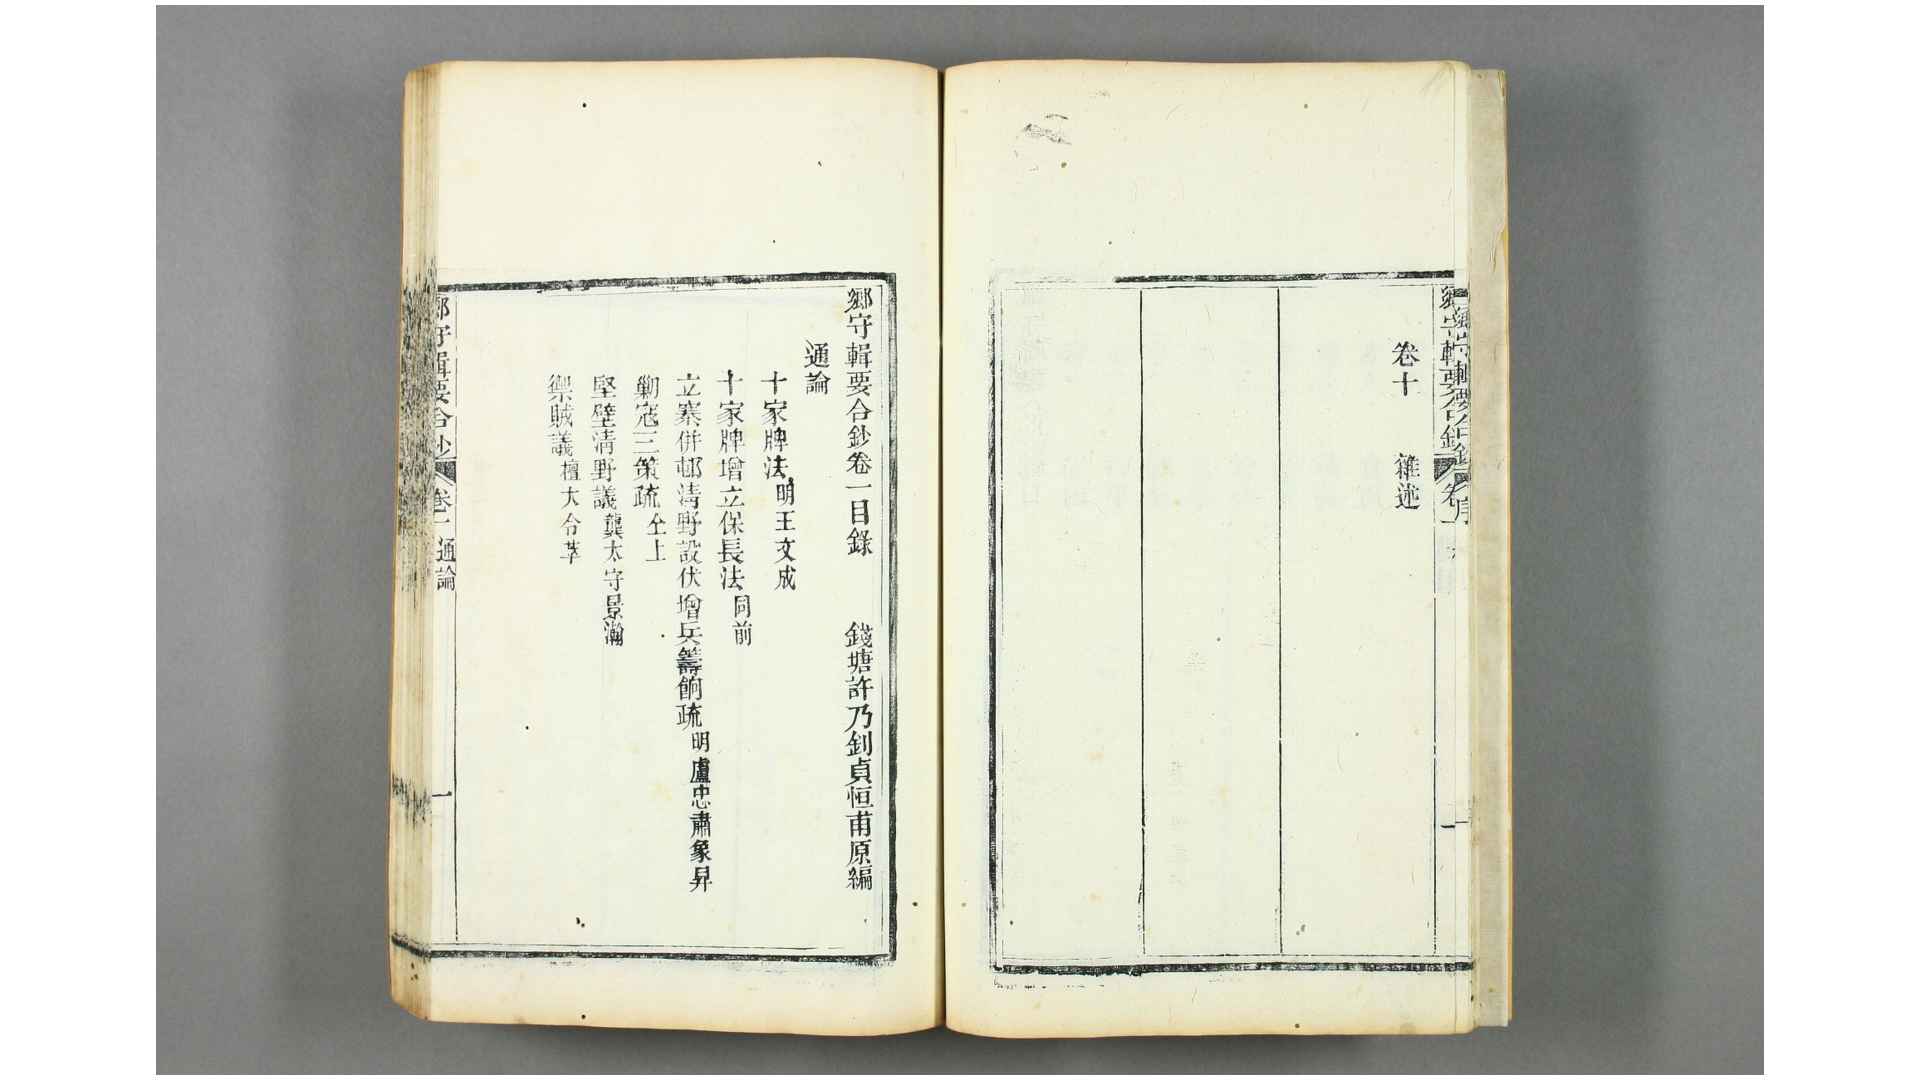 卷十　雜述
鄉守輯要合鈔卷一目錄　錢塘許乃釗貞恒甫原編
通論
十家牌法 明王文成
十家牌增立保長法 同前
立寨併邨淸野設伏增兵籌餉疏 明盧忠肅象昇
剿寇三策疏 仝上
堅壁淸野議 龔太守景瀚
禦賊議 檀大令萃
鄉守輯要合鈔 卷一 通論 一